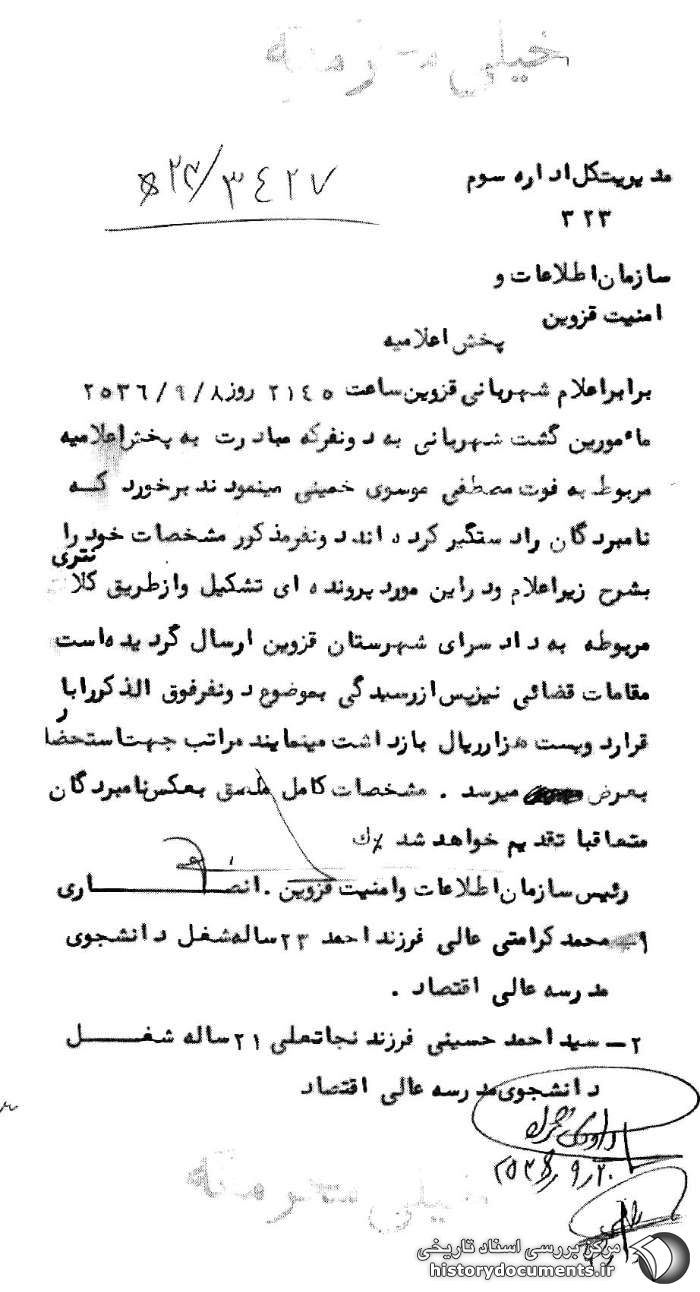 خیلی محرمانه
مدیریت کل اداره سوم
۳۲۳
۲۴/۳۴۲۷
سازمان اطلاعات و
امنیت قزوین
پخش اعلامیه
برابر اعلام شهربانی قزوین ساعت ۲۱۴۵ روز ۲۵۳۶/۹/۸
مأمورین گشت شهربانی به دو نفر که مبادرت به پخش اعلامیه
مربوط به فوت مصطفی موسوی خمینی مینمودند برخورد که
نامبردگان را دستگیر کرده اند دو نفر مذکور مشخصات خود را
بشرح زیر اعلام و در این مورد پرونده ای تشکیل و از طریق کلانتری
مربوطه به دادسرای شهرستان قزوین ارسال گردیده است
مقامات قضائی نیز پس از رسیدگی بموضوع دو نفر فوق الذکر را با
قرار دویست هزار ریال بازداشت مینمایند مراتب جهت استحضار
بعرض میرسد . مشخصات کامل ملصق بعکس نامبردگان
متعاقبا تقدیم خواهد شد
رئیس سازمان اطلاعات و امنیت قزوین . انصاری
۱- محمد کرامتی عالی فرزند احمد ۲۳ ساله شغل دانشجوی
مدرسه عالی اقتصاد .
۲- سید احمد حسینی فرزند نجاتعلی ۲۱ ساله شغل
دانشجوی مدرسه عالی اقتصاد
خیلی محرمانه
مرکز بررسی اسناد تاریخی
historydocuments.ir